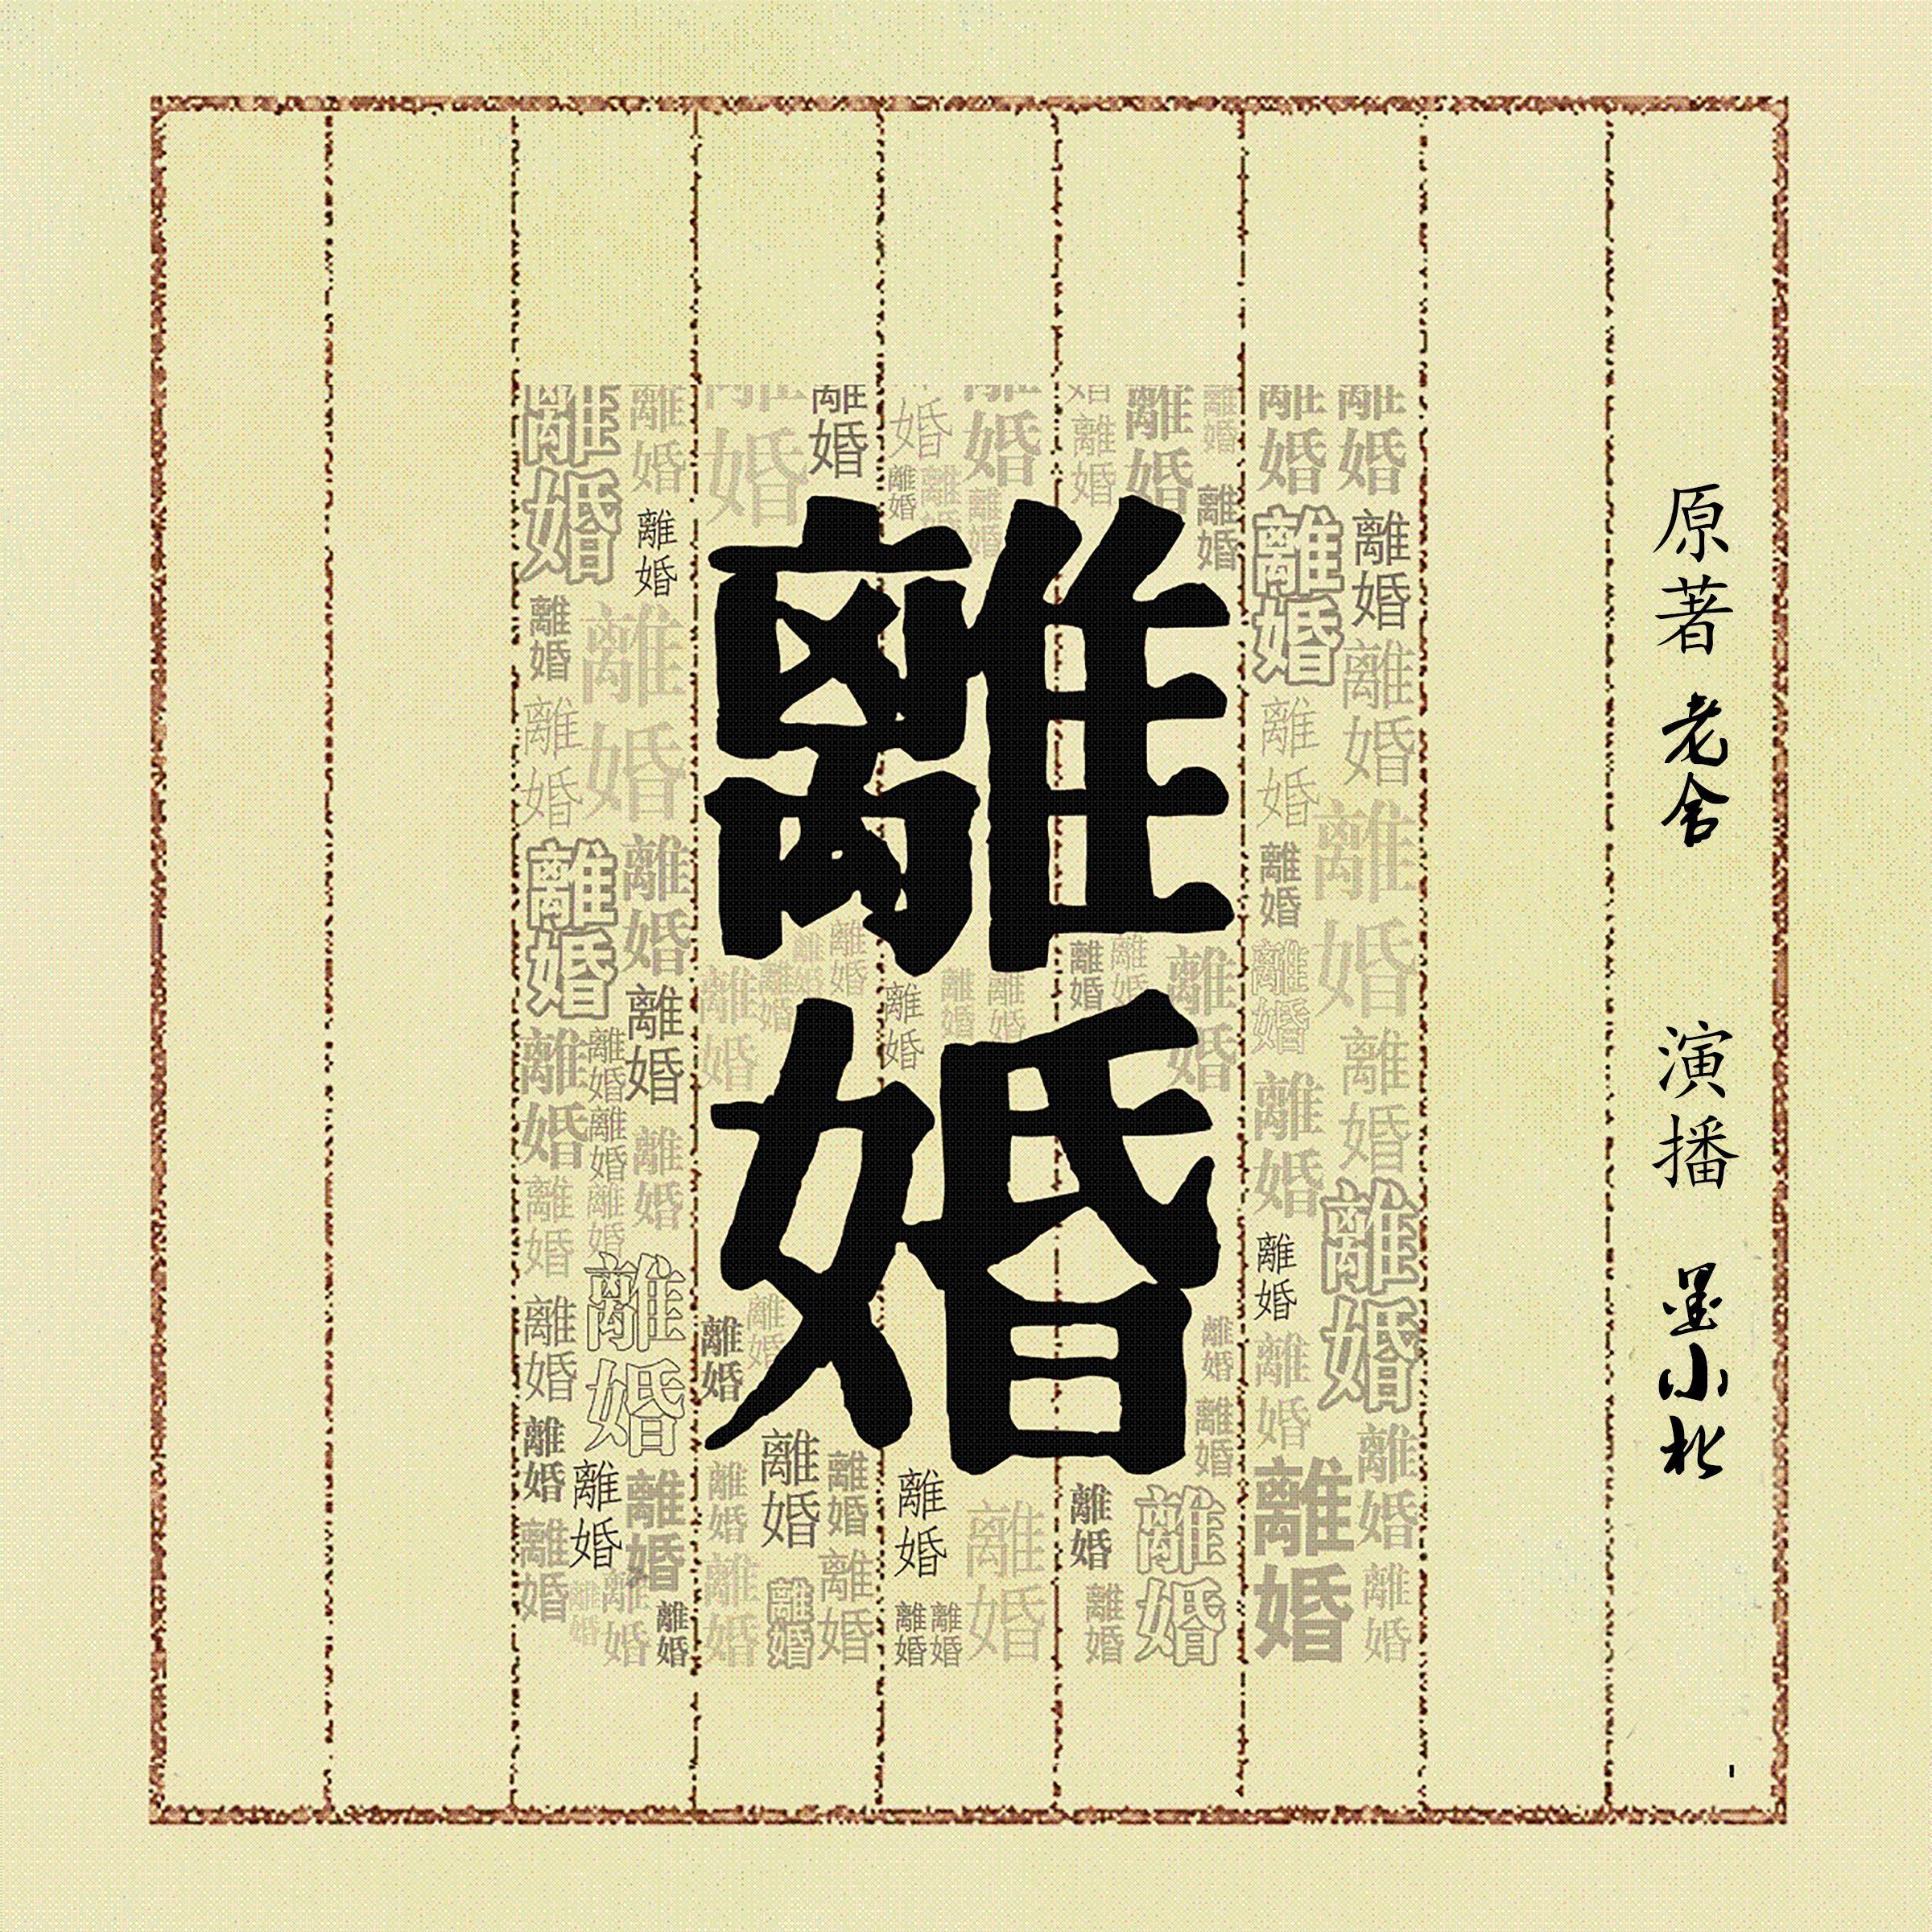 原著 老舍 演播 墨小北
離婚